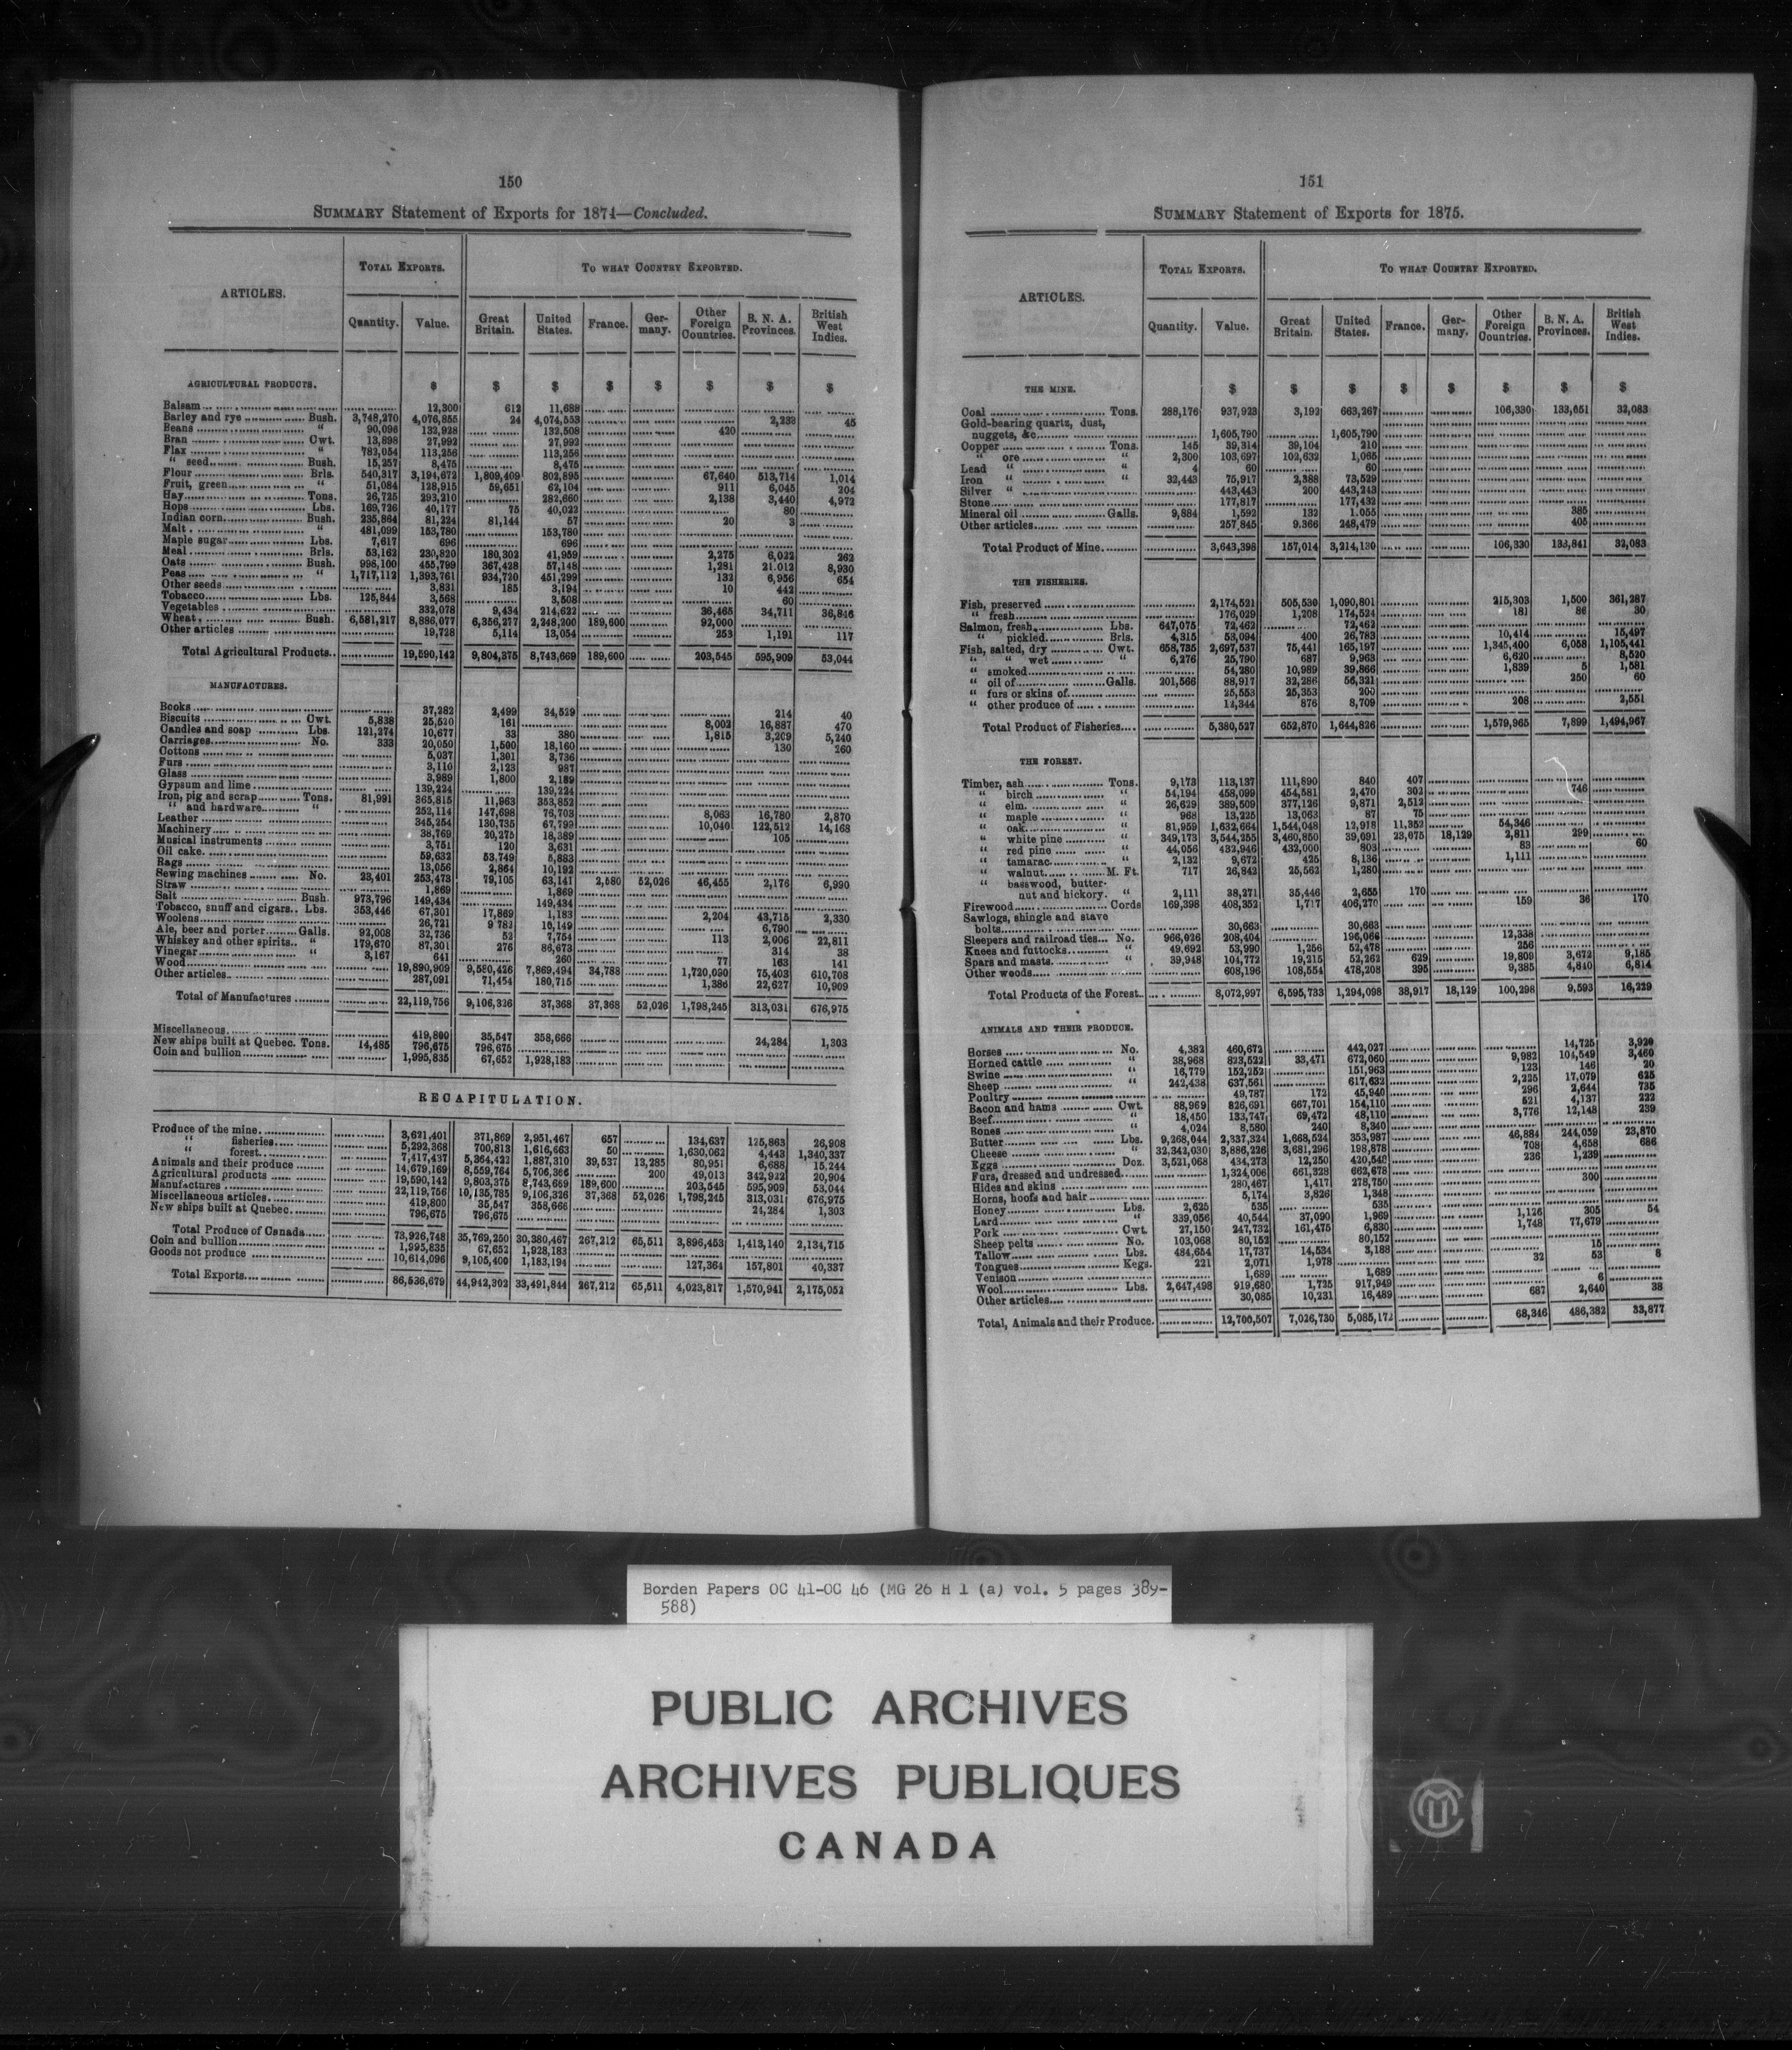 150
SUMMARY Statement of Exports for 1874—Concluded.
ARTICLES. TOTAL EXPORTS. TO WHAT COUNTRY EXPORTED.
Quantity. Value. Great Britain. United States. France. Germany. Other Foreign Countries. B. N. A. Provinces. British West Indies.
AGRICULTURAL PRODUCTS. $ $ $ $ $ $ $ $
Balsam 12,300 612 11,688
Barley and rye Bush. 3,748,270 4,076,855 24 4,074,553 2,233 45
Beans " 90,098 132,928 132,508 420
Bran Cwt. 13,898 27,992 27,992
Flax " 783,054 113,256 113,256
" seed Bush. 15,257 8,475 8,475
Flour Brls. 540,317 3,194,672 1,809,409 802,895 67,640 513,714 1,014
Fruit, green " 51,084 128,915 59,651 62,104 911 6,045 204
Hay Tons. 26,725 293,210 282,660 2,138 3,440 4,972
Hops Lbs. 169,726 40,177 75 40,022 80
Indian corn Bush. 235,864 81,224 81,144 57 20 3
Malt " 481,099 153,780 153,780
Maple sugar Lbs. 7,617 696 696
Meal Brls. 53,162 230,820 180,302 41,959 2,275 6,022 262
Oats Bush. 998,100 455,799 367,428 57,148 1,281 21,012 8,930
Peas " 1,717,112 1,393,761 934,720 451,299 132 6,956 654
Other seeds 3,831 185 3,194 10 442
Tobacco Lbs. 125,844 3,568 3,508 60
Vegetables 332,078 9,434 214,622 36,465 34,711 36,846
Wheat Bush. 6,581,217 8,886,077 6,356,277 2,248,200 189,600 92,000
Other articles 19,728 5,114 13,054 253 1,191 117
Total Agricultural Products 19,590,142 9,804,375 8,743,669 189,600 203,545 595,909 53,044
MANUFACTURES.
Books 37,282 2,499 34,529 214 40
Biscuits Cwt. 5,838 25,520 161 8,002 16,887 470
Candles and soap Lbs. 121,274 10,677 33 380 1,815 3,209 5,240
Carriages No. 333 20,050 1,500 18,160 130 260
Cottons 5,037 1,301 3,736
Furs 3,110 2,123 987
Glass 3,989 1,800 2,189
Gypsum and lime 139,224 139,224
Iron, pig and scrap Tons. 81,991 365,815 11,963 353,852
" and hardware " 252,114 147,698 76,703 8,063 16,780 2,870
Leather 345,254 130,735 67,799 10,040 122,512 14,168
Machinery 38,769 20,275 18,389 105
Musical instruments 3,751 120 3,631
Oil cake 59,632 53,749 5,883
Rags 13,056 2,864 10,192
Sewing machines No. 23,401 253,473 79,105 63,141 2,580 52,026 46,455 2,176 6,990
Straw 1,869 1,869
Salt Bush. 973,796 149,434 149,434
Tobacco, snuff and cigars Lbs. 353,446 67,301 17,869 1,183 2,204 43,715 2,330
Woolens 26,721 9 782 10,149 6,790
Ale, beer and porter Galls. 92,008 32,736 52 7,754 113 2,006 22,811
Whiskey and other spirits " 179,670 87,301 276 86,673 314 38
Vinegar " 3,167 641 260 77 163 141
Wood 19,890,909 9,580,426 7,869,494 34,788 1,720,090 75,403 610,708
Other articles 287,091 71,454 180,715 1,386 22,627 10,909
Total of Manufactures 22,119,756 9,106,326 37,368 37,368 52,026 1,798,245 313,031 676,975
Miscellaneous 419,800 35,547 358,666 24,284 1,303
New ships built at Quebec. Tons. 14,485 796,675 796,675
Coin and bullion 1,995,835 67,652 1,928,183
RECAPITULATION.
Produce of the mine 3,621,401 371,869 2,951,467 657 134,637 125,863 26,908
" fisheries 5,292,368 700,813 1,616,663 50 1,630,062 4,443 1,340,337
" forest 7,417,437 5,364,422 1,887,310 39,537 13,285 80,951 6,688 15,244
Animals and their produce 14,679,169 8,559,764 5,706,366 200 49,013 342,922 20,904
Agricultural products 19,590,142 9,803,375 8,743,669 189,600 203,545 595,909 53,044
Manufactures 22,119,756 10,135,785 9,106,326 37,368 52,026 1,798,245 313,031 676,975
Miscellaneous articles 419,800 35,547 358,666 24,284 1,303
New ships built at Quebec 796,675 796,675
Total Produce of Canada 73,926,748 35,769,250 30,380,467 267,212 65,511 3,896,453 1,413,140 2,134,715
Coin and bullion 1,995,835 67,652 1,928,183
Goods not produce 10,614,096 9,105,400 1,183,194 127,364 157,801 40,337
Total Exports 86,536,679 44,942,302 33,491,844 267,212 65,511 4,023,817 1,570,941 2,175,052
151
SUMMARY Statement of Exports for 1875.
ARTICLES. TOTAL EXPORTS. TO WHAT COUNTRY EXPORTED.
Quantity. Value. Great Britain. United States. France. Germany. Other Foreign Countries. B. N. A. Provinces. British West Indies.
THE MINE. $ $ $ $ $ $ $ $
Coal Tons. 288,176 937,923 3,192 663,267 106,330 133,051 32,083
Gold-bearing quartz, dust,
nuggets, &c 1,605,790 1,605,790
Copper Tons. 145 39,314 39,104 210
" ore " 2,300 103,697 102,632 1,065
Lead " " 4 60 60
Iron " " 32,443 75,917 2,388 73,529
Silver " 443,443 200 443,243
Stone 177,817 177,432 385
Mineral oil Galls. 9,884 1,592 132 1,055 405
Other articles 257,845 9,366 248,479
Total Product of Mine 3,643,398 157,014 3,214,130 106,330 133,841 32,083
THE FISHERIES.
Fish, preserved 2,174,521 505,530 1,090,801 215,303 1,500 361,287
" fresh 176,029 1,208 174,524 181 86 30
Salmon, fresh Lbs. 647,075 72,462 72,462
" pickled Brls. 4,315 53,094 400 26,783 10,414 15,497
Fish, salted, dry Cwt. 658,735 2,697,537 75,441 165,197 1,345,400 6,058 1,105,441
" " wet " 6,276 25,790 687 9,963 6,620 8,520
" smoked 54,280 10,989 39,866 1,839 5 1,581
" oil of Galls. 201,566 88,917 32,286 56,321 250 60
" furs or skins of 25,553 25,353 200
" other produce of 12,344 876 8,709 208 2,551
Total Product of Fisheries 5,380,527 652,870 1,644,826 1,579,965 7,899 1,494,967
THE FOREST.
Timber, ash Tons. 9,173 113,137 111,890 840 407
" birch " 54,194 458,099 454,581 2,470 302 746
" elm " 26,629 389,509 377,126 9,871 2,512
" maple " 968 13,225 13,063 87 75
" oak " 81,959 1,632,664 1,544,048 12,918 11,352 54,346
" white pine " 349,173 3,544,255 3,460,850 39,091 23,675 18,129 2,811 299
" red pine " 44,056 432,946 432,000 803 83 60
" tamarac " 2,132 9,672 425 8,136 1,111
" walnut M. Ft. 717 26,842 25,562 1,280
" basswood, butter-
nut and hickory. " 2,111 38,271 35,446 2,655 170
Firewood Cords 169,398 408,352 1,717 406,270 159 36 170
Sawlogs, shingle and stave
bolts 30,663 30,663
Sleepers and railroad ties No. 966,026 208,404 196,066 12,338
Knees and futtocks " 49,692 53,990 1,256 52,478 256
Spars and masts " 39,948 104,772 19,215 52,262 629 19,809 3,672 9,185
Other woods 608,196 108,554 478,208 395 9,385 4,840 6,814
Total Products of the Forest 8,072,997 6,595,733 1,294,098 38,917 18,129 100,298 9,593 16,229
ANIMALS AND THEIR PRODUCE.
Horses No. 4,382 460,672 442,027 14,725 3,920
Horned cattle " 38,968 823,522 33,471 672,060 9,982 104,549 3,460
Swine " 16,779 152,252 151,963 123 146 20
Sheep " 242,438 637,561 617,632 2,225 17,079 625
Poultry 49,787 172 45,940 296 2,644 735
Bacon and hams Cwt. 88,969 826,691 667,701 154,110 521 4,137 222
Beef " 18,450 133,747 69,472 48,110 3,776 12,148 239
Bones " 4,024 8,580 240 8,340
Butter Lbs. 9,268,044 2,337,324 1,668,524 353,987 46,884 244,059 23,870
Cheese " 32,342,030 3,886,226 3,681,296 198,878 708 4,658 686
Eggs Doz. 3,521,068 434,273 12,250 420,548 236 1,239
Furs, dressed and undressed 1,324,006 661,328 662,678
Hides and skins 280,467 1,417 278,750 300
Horns, hoofs and hair 5,174 3,826 1,348
Honey Lbs. 2,625 535 535
Lard " 339,056 40,544 37,090 1,969 1,126 305 54
Pork Cwt. 27,150 247,732 161,475 6,830 1,748 77,679
Sheep pelts No. 103,068 80,152 80,152
Tallow Lbs. 484,654 17,737 14,534 3,188 15
Tongues Kegs. 221 2,071 1,978 32 53 8
Venison 1,689 1,689
Wool Lbs. 2,647,498 919,680 1,725 917,949 6
Other articles 30,085 10,231 16,489 687 2,640 38
Total, Animals and their Produce. 12,700,507 7,026,730 5,085,172 68,346 486,382 33,877
Borden Papers OC 41-OC 46 (MG 26 H 1 (a) vol. 5 pages 389-
588)
PUBLIC ARCHIVES
ARCHIVES PUBLIQUES
CANADA